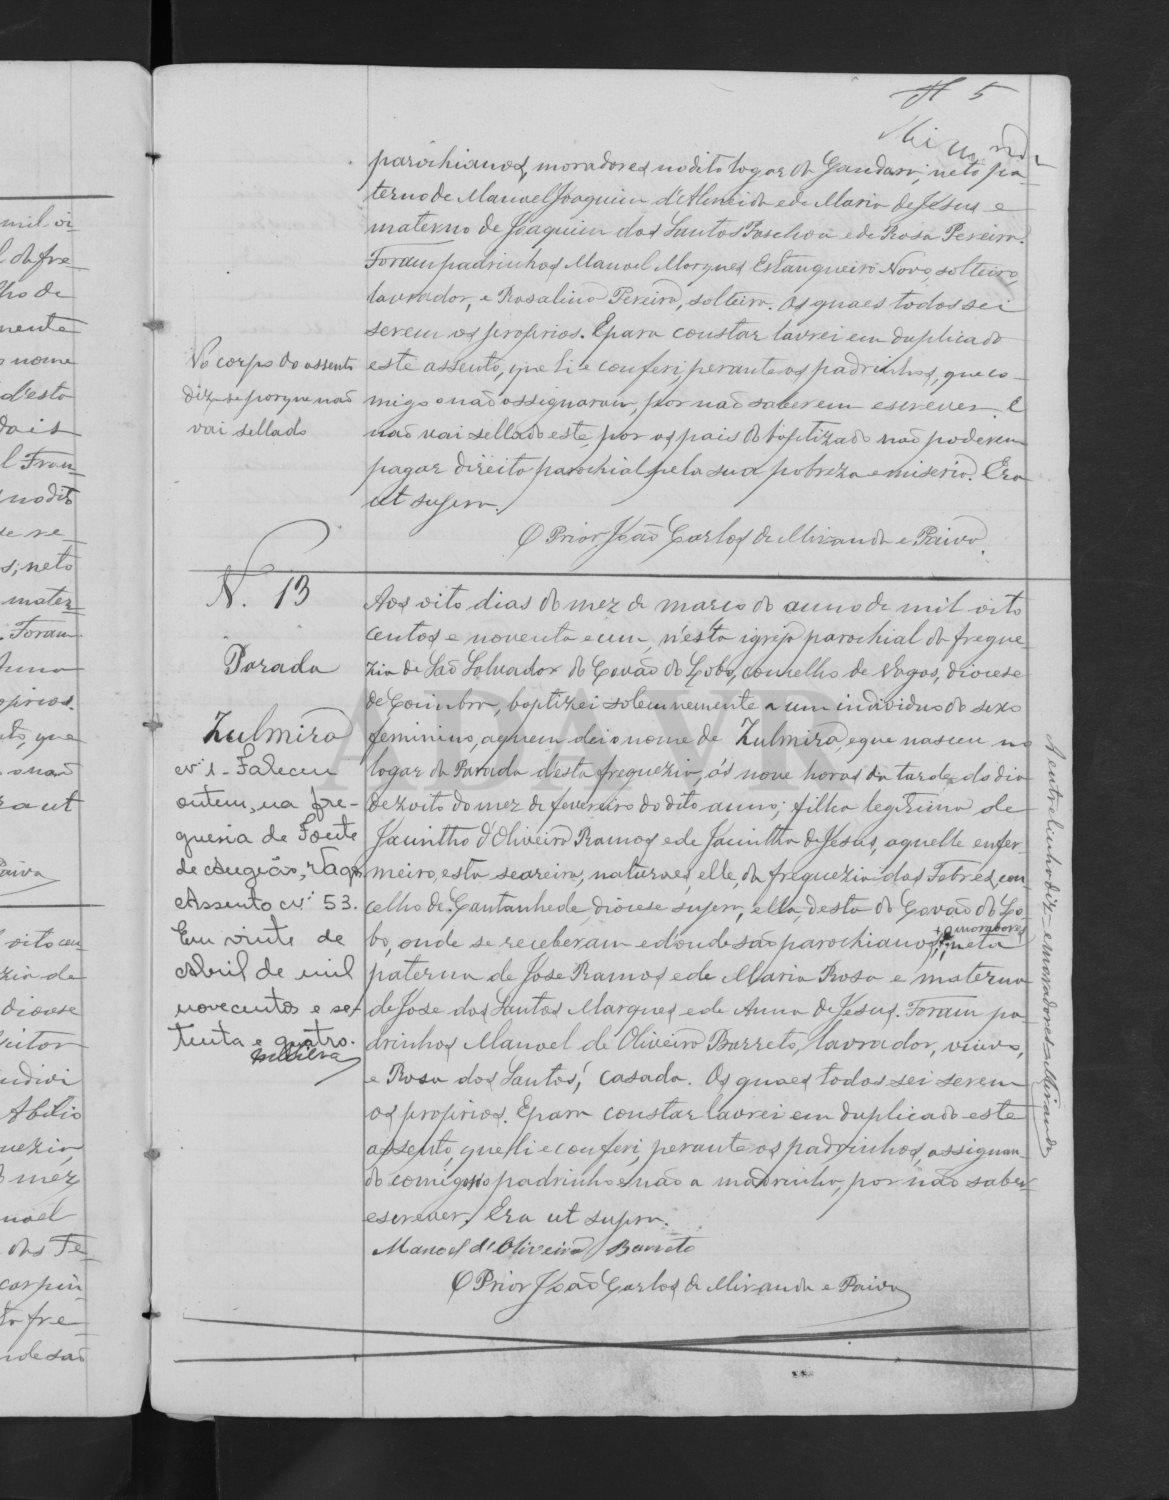 5
Miranda
parochianos, moradores no dito logar da Gandara; neto pa-
terno de Manoel Joaquim d'Almeida e de Maria de Jesus e
materno de Joaquim dos Santos Paschoa e de Rosa Pereira.
Foram padrinhos Manoel Marques Estanqueiro Novo, solteiro,
lavrador, e Rosalina Pereira, solteira. Os quaes todos sei
serem os proprios. E para constar lavrei em duplicado
este assento, que li e conferi, perante os padrinhos, que co-
migo o não assignaram, por não saberem escrever. E
não vai sellado este, por os pais do baptizado não poderem
pagar direito parochial pela sua pobreza e miseria. Era
ut supra.
O Prior João Carlos de Miranda e Paiva.
No corpo do assento
diz-se porque não
vai sellado
N. 13
Parada
Zulmira
Nº 1 - Faleceu
ontem, na fre-
guesia de Fonte
de Angeão, Vagos
Assento nº 53.
Em vinte de
Abril de mil
novecentos e se-
tenta e quatro.
Aos oito dias do mez de março do anno de mil oito
centos e noventa e um, n'esta igreja parochial da fregue-
zia de São Salvador do Covão do Lobo, concelho de Vagos, diocese
de Coimbra, baptizei solemnemente a um individuo do sexo
feminino, a quem dei o nome de Zulmira, e que nasceu no
logar da Parada d'esta freguezia, ás nove horas da tarde do dia
dezoito do mez de fevereiro do dito anno; filha legitima de
Jacintho d'Oliveira Ramos e de Jacintha de Jesus, aquelle enfer-
meiro, esta seareira, naturaes, elle, da freguezia das Febres, con-
celho de Cantanhede, diocese supra, ella, desta do Covão do Lo-
bo, onde se receberam e donde são parochianos, e moradores; neta
paterna de Jose Ramos e de Maria Rosa e materna
de Jose dos Santos Marques e de Anna de Jesus. Foram pa-
drinhos Manoel de Oliveira Barreto, lavrador, viuvo,
e Rosa dos Santos, casada. Os quaes todos sei serem
os proprios. E para constar lavrei em duplicado este
assento, que li e conferi, perante os padrinhos, assignan-
do comigo o padrinho e não a madrinha, por não saber
escrever. Era ut supra.
Manoel d'Oliveira Barreto
O Prior João Carlos de Miranda e Paiva
A entrelinha diz - e moradores - Miranda